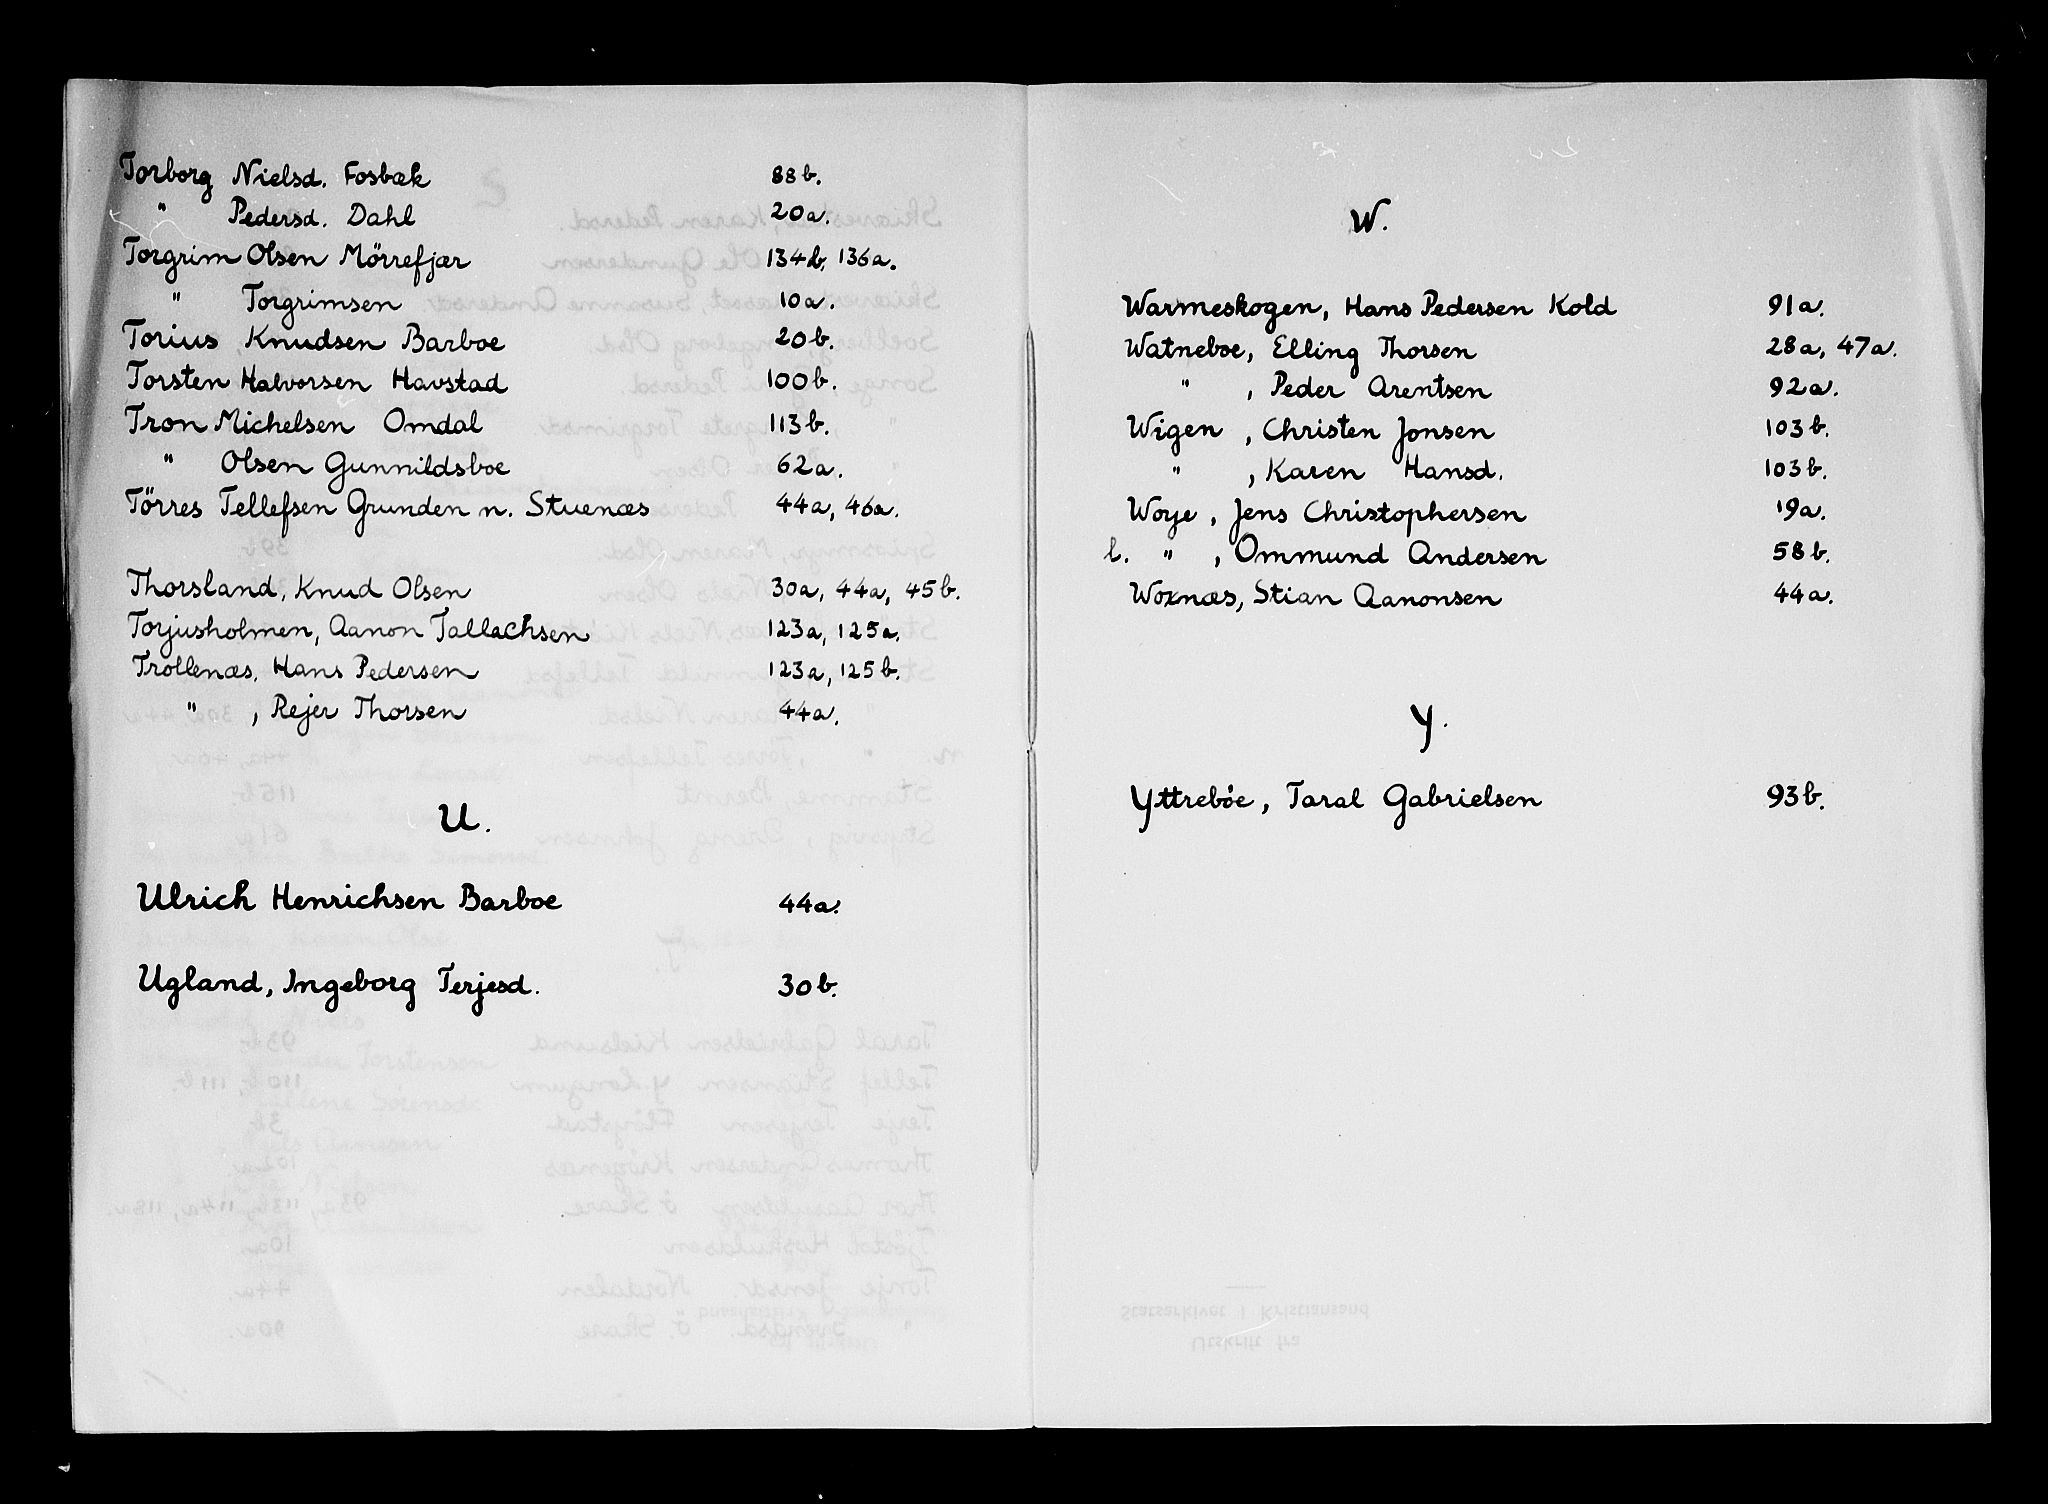 Torborg Nielsd. Fosbæk 88b.
" Pedersd. Dahl 20a.
Torgrim Olsen Mörrefjær 134b, 136a.
" Torgrimsen 10a.
Torius Knudsen Barboe 20b.
Torsten Halvorsen Havstad 100b.
Tron Michelsen Omdal 113b.
" Olsen Gunnildsboe 62a.
Törres Tellefsen Grunden n. Stuenæs 44a, 46a.
Thorsland, Knud Olsen 30a, 44a, 45b.
Torjusholmen, Aanon Tallachsen 123a, 125a.
Trollenæs, Hans Pedersen 123a, 125b.
" , Rejer Thorsen 44a.
U.
Ulrich Henrichsen Barboe 44a.
Ugland, Ingeborg Terjesd. 30b.
W.
Warmeskogen, Hans Pedersen Kold 91a.
Watneboe, Elling Thorsen 28a, 47a.
" , Peder Arentsen 92a.
Wigen , Christen Jonsen 103b.
" , Karen Hansd. 103b.
Woje , Jens Christophersen 19a.
l. " , Ommund Andersen 58b.
Woxnæs, Stian Aanonsen 44a.
Y.
Yttreböe, Taral Gabrielsen 93b.